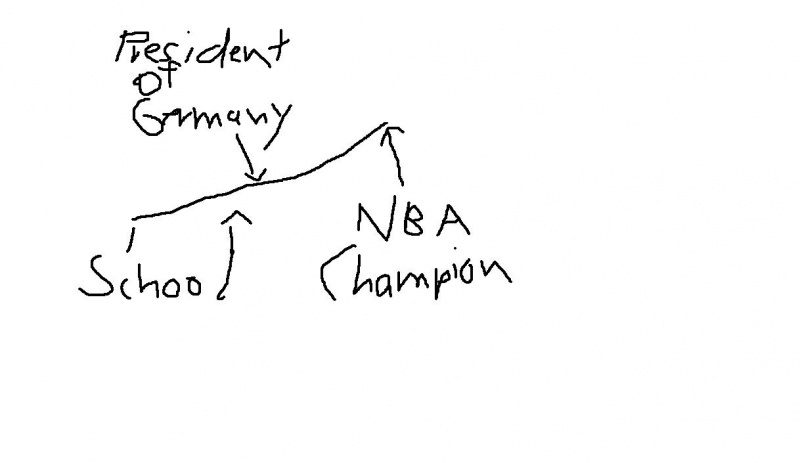 President
of
Germany
NBA
School
Champion